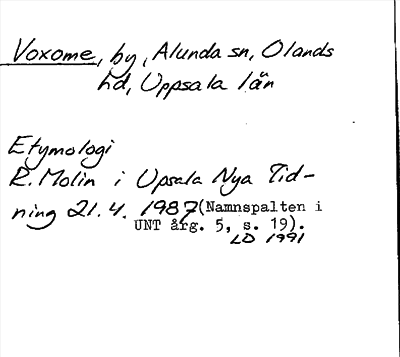 Voxome, by, Alunda sn, Olands
hd, Uppsala län
Etymologi
R. Molin i Upsala Nya Tid-
ning 21.4. 1987 (Namnspalten i
UNT årg. 5, s. 19).
LD 1991